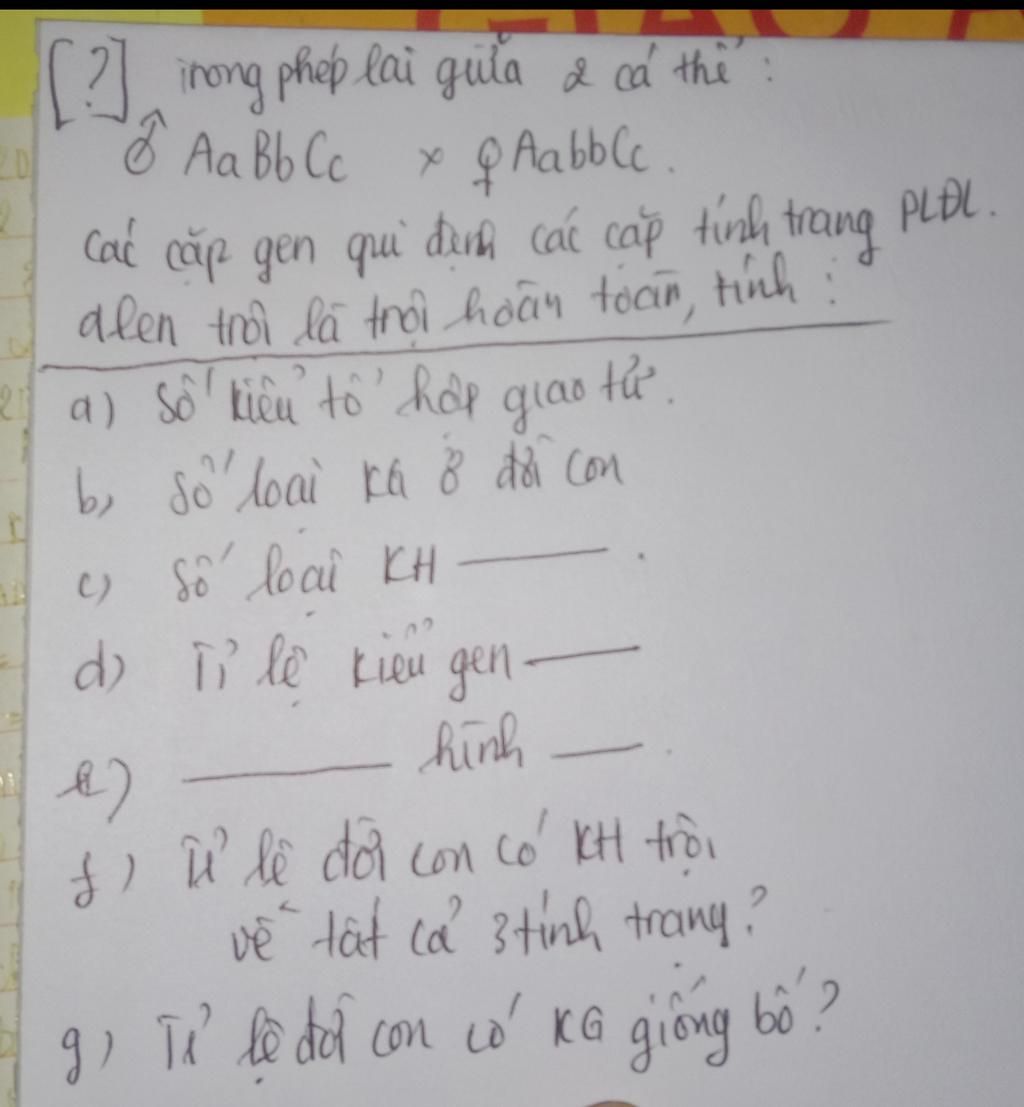 GIÁO A
[?] Trong phép lai giữa 2 cá thể :
♂ AaBbCc × ♀ AabbCc.
Các cặp gen qui định các cặp tính trạng PLĐL.
alen trội là trội hoàn toàn, tính :
a) Số kiểu tổ hợp giao tử.
b) Số loại KG ở đời con
c) Số loại KH ——— .
d) Tỉ lệ kiểu gen ———
e) ——— hình ——— .
f) Tỉ lệ đời con có KH trội
về tất cả 3 tính trạng?
g) Tỉ lệ đời con có KG giống bố?